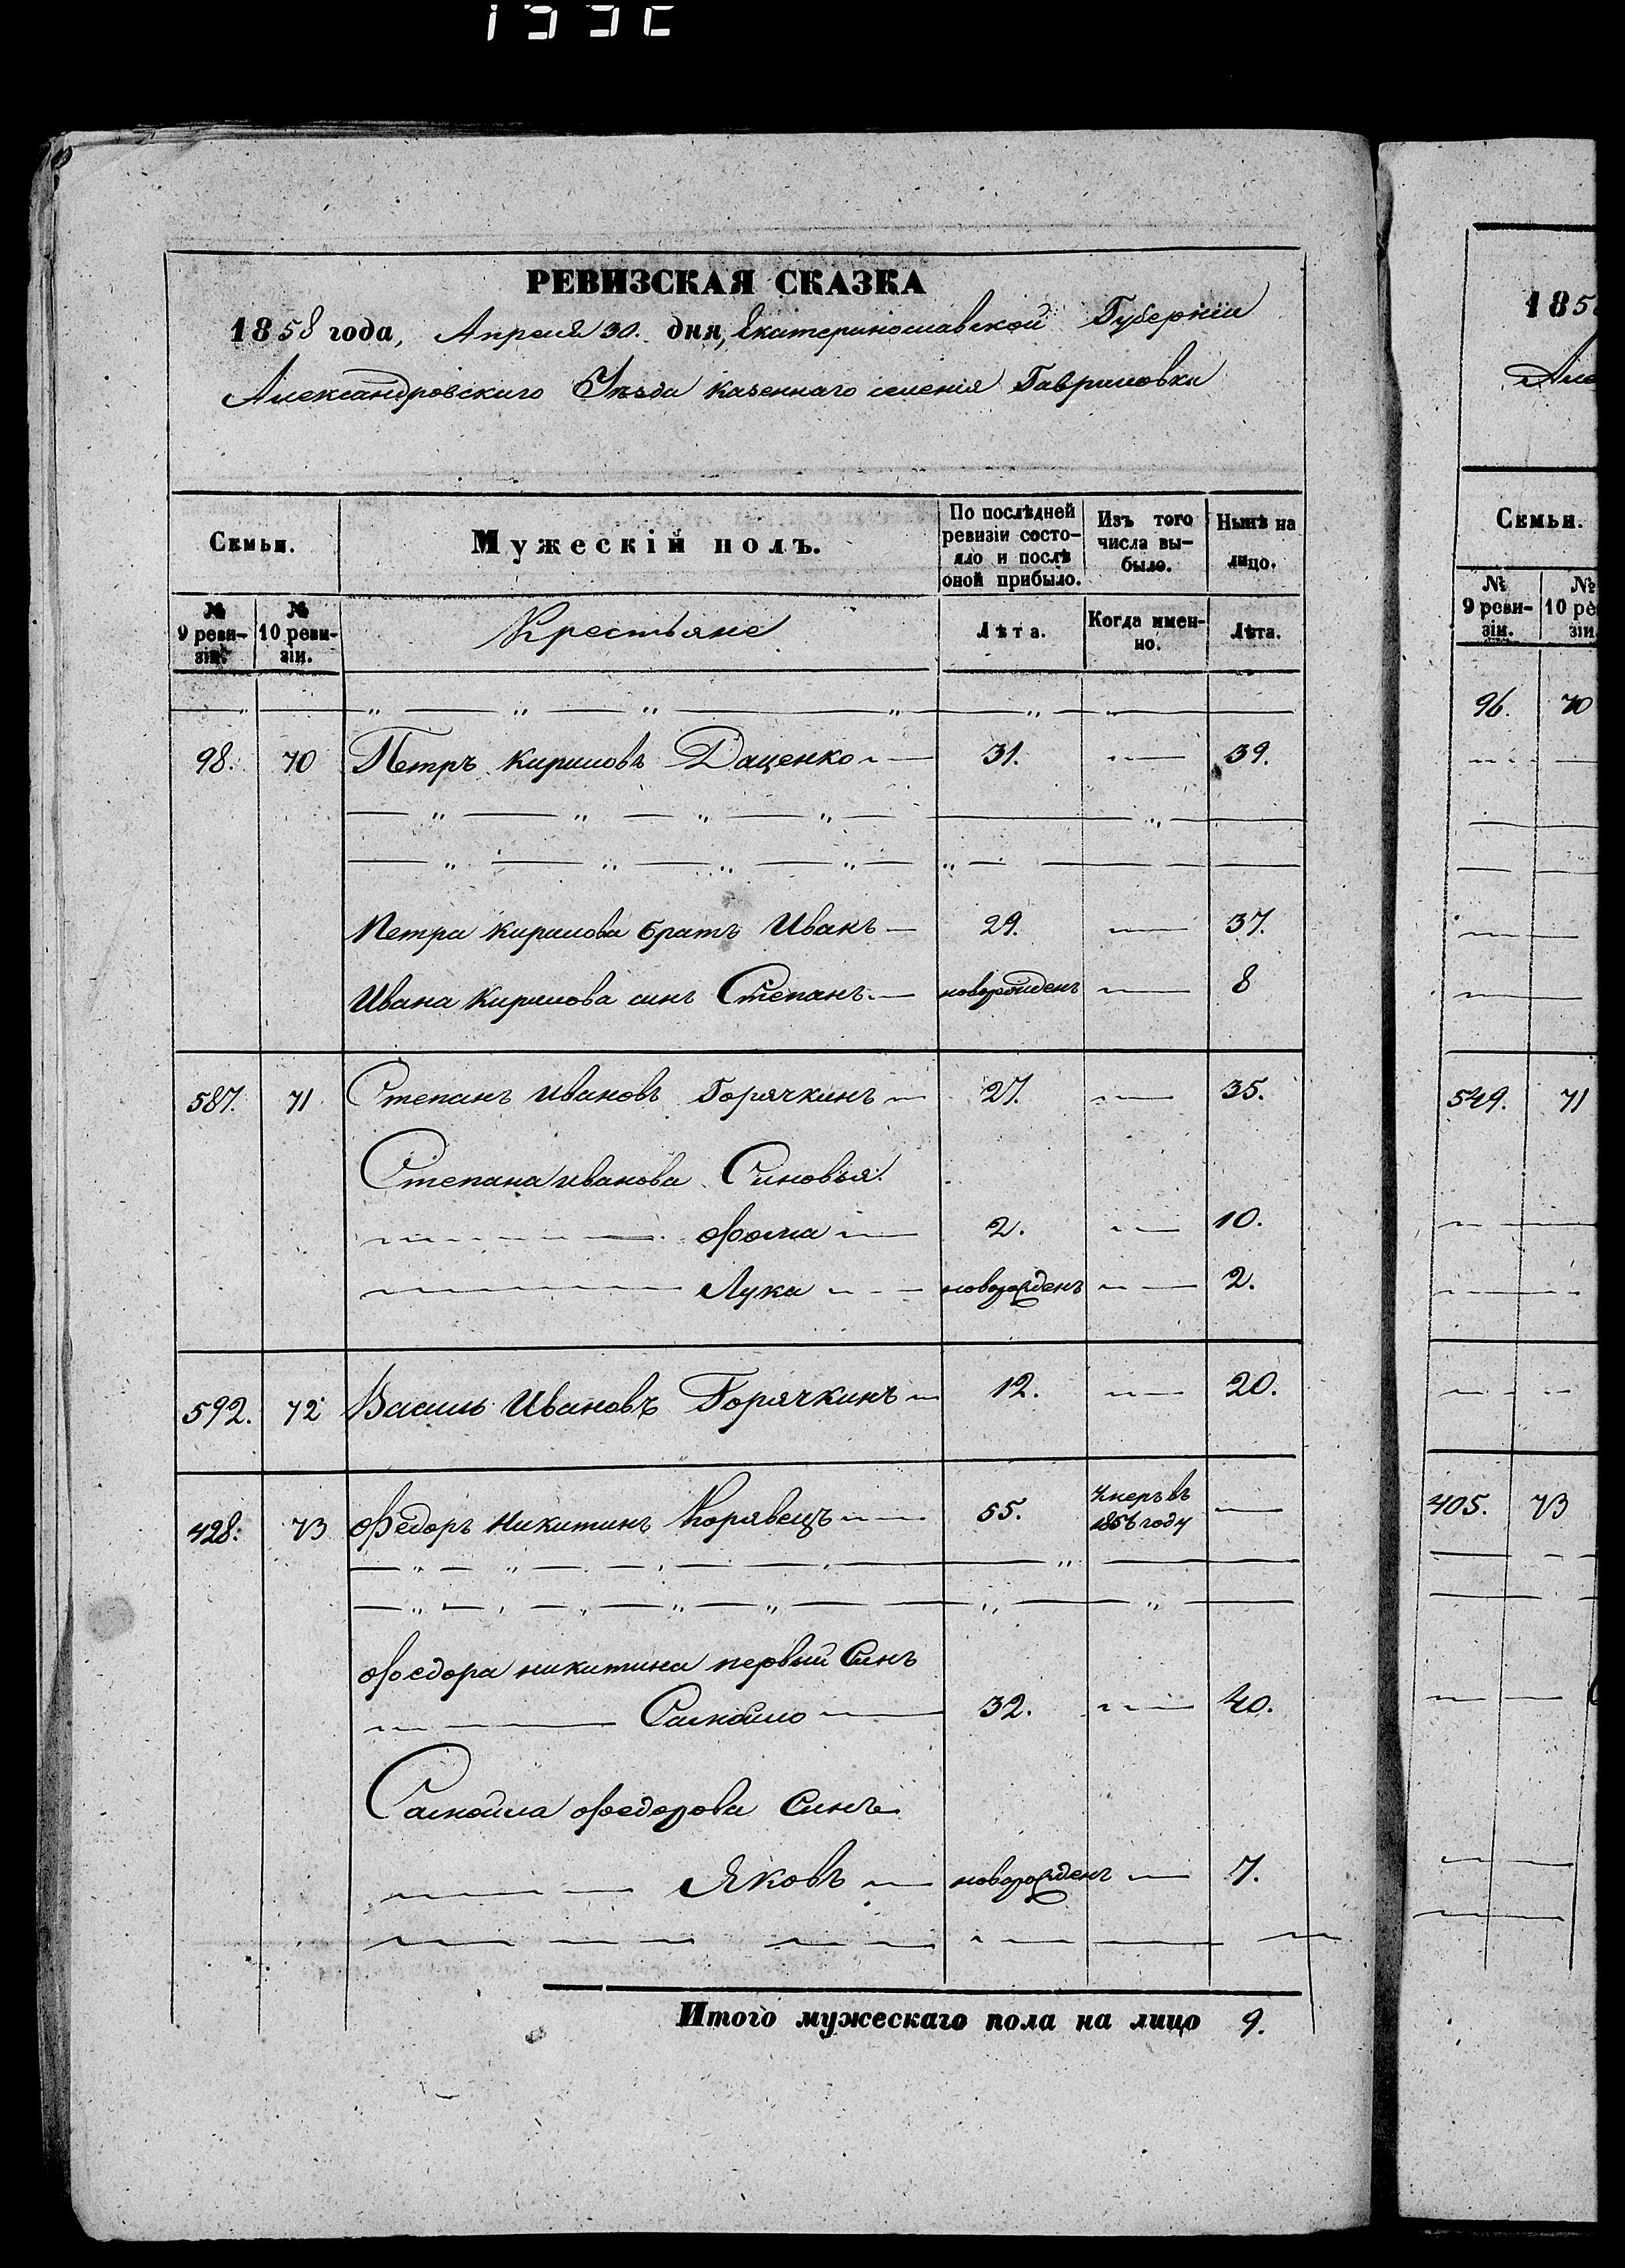 РЕВИЗСКАЯ СКАЗКА
1858 года, Апреля 30. дня, Екатеринославской Губернии
Александровского Уезда казеннаго селенія Гавриловки
Семьи.
Мужескій полъ.
По послѣдней ревизіи состо-
яло и послѣ оной прибыло.
Изъ того числа вы-
было.
Нынѣ на лицо.
№ 9 реви-
зіи.
№ 10 реви-
зіи.
Крестьяне
Лѣта.
Когда имен-
но.
Лѣта.
98. 70 Петръ Кириловъ Даценко 31. 39.
Петра Кирилова братъ Иванъ 29. 37.
Ивана Кирилова синъ Степанъ новорожденъ 8
587. 71 Степанъ Ивановъ Горячкинъ 27. 35.
Степана Иванова Синовья
Фома 2. 10.
Лука новорожденъ 2.
592. 72 Василь Ивановъ Горячкинъ 12. 20.
428. 73 Федоръ Никитинъ Корявецъ 55. Умеръ въ 1856 году
Федора Никитина первый Синъ
Самойло 32. 40.
Самойла Федорова Синъ
Яковъ новорожденъ 7.
Итого мужескаго пола на лицо 9.
185
Але
Семьи.
№ 9 реви-
зіи.
№ 10 ре
зіи
96. 70
549. 71
405. 73